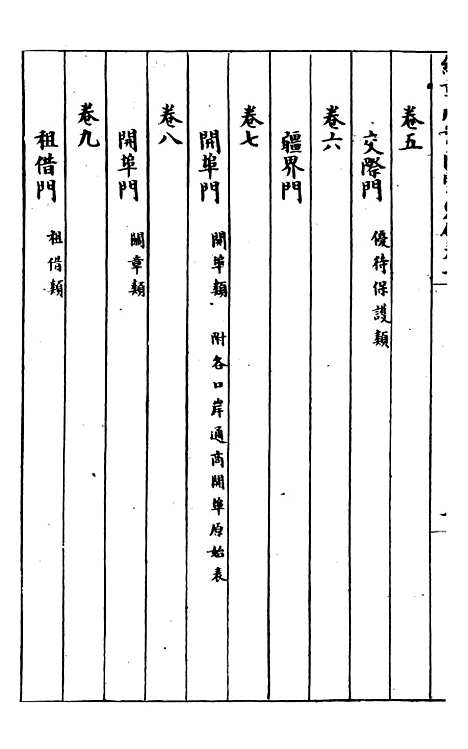 卷五
交際門 優待保護類
卷六
疆界門
卷七
開埠門 開埠類 附各口岸通商開埠原始表
卷八
開埠門 關章類
卷九
租借門 租借類